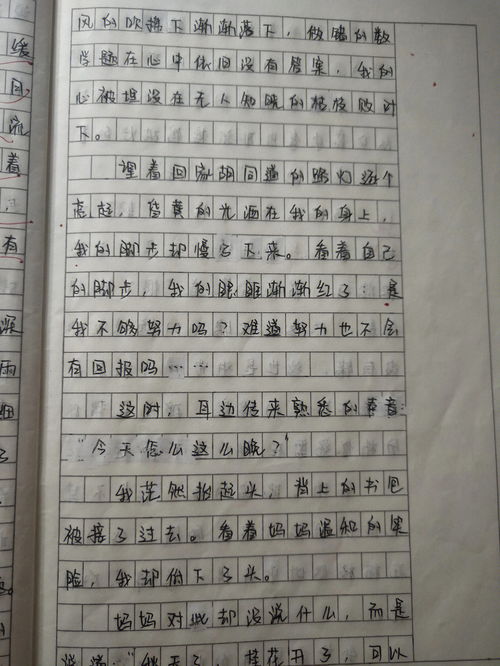 缓
目
流
着
有
深
雨
细
风的吹拂下渐渐落下，做错的数
学题在心中依旧没有答案，我的
心被埋没在无人知晓的枯枝败叶
下。
望着回家胡同道的路灯逐个
亮起，昏黄的光洒在我的身上，
我的脚步却慢了下来。看着自己
的脚步，我的眼眶渐渐红了：是
我不够努力吗？难道努力也不会
有回报吗……
这时，耳边传来熟悉的声音：
“今天怎么这么晚？”
我茫然抬起头，背上的书包
被接了过去。看着妈妈温和的笑
脸，我却低下了头。
妈妈对此却没说什么，而是
：“秋天了，桂花开了，可以